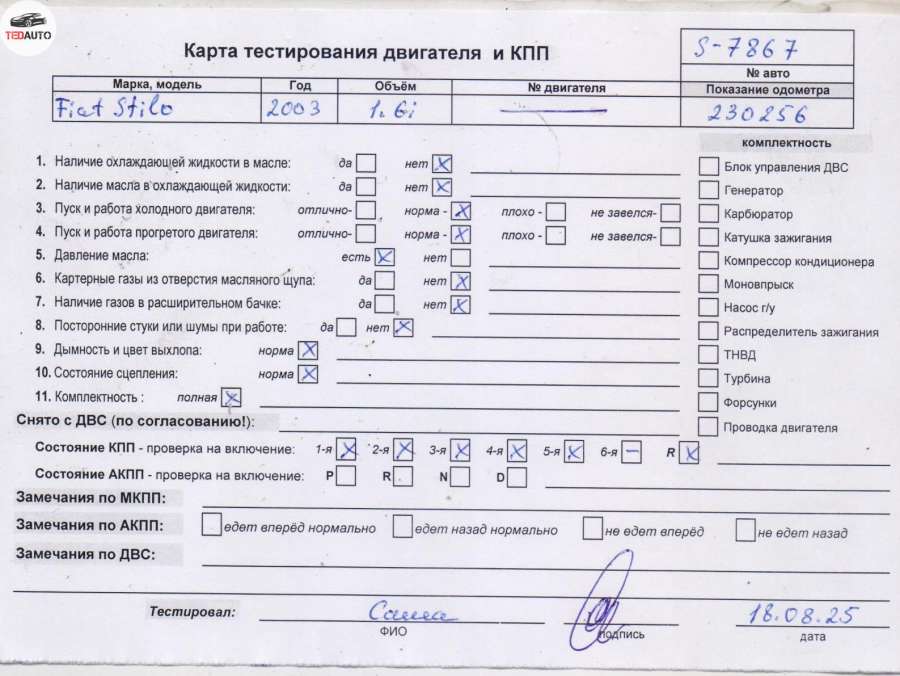 TEDAUTO
Карта тестирования двигателя и КПП
S-7867
№ авто
Марка, модель Год Объём № двигателя Показание одометра
Fiat Stilo 2003 1.6i — 230256
комплектность
1. Наличие охлаждающей жидкости в масле: да нет X
Блок управления ДВС
2. Наличие масла в охлаждающей жидкости: да нет X
Генератор
3. Пуск и работа холодного двигателя: отлично- норма - X плохо - не завелся-
Карбюратор
4. Пуск и работа прогретого двигателя: отлично- норма - X плохо - не завелся-
Катушка зажигания
5. Давление масла: есть X нет
Компрессор кондиционера
6. Картерные газы из отверстия масляного щупа: да нет X
Моновпрыск
7. Наличие газов в расширительном бачке: да нет X
Насос г/у
8. Посторонние стуки или шумы при работе: да нет X
Распределитель зажигания
9. Дымность и цвет выхлопа: норма X
ТНВД
10. Состояние сцепления: норма X
Турбина
11. Комплектность : полная X
Форсунки
Снято с ДВС (по согласованию!):
Проводка двигателя
Состояние КПП - проверка на включение: 1-я X 2-я X 3-я X 4-я X 5-я X 6-я — R X
Состояние АКПП - проверка на включение: P R N D
Замечания по МКПП:
Замечания по АКПП: едет вперёд нормально едет назад нормально не едет вперёд не едет назад
Замечания по ДВС:
Тестировал: Саша 18.08.25
ФИО подпись дата